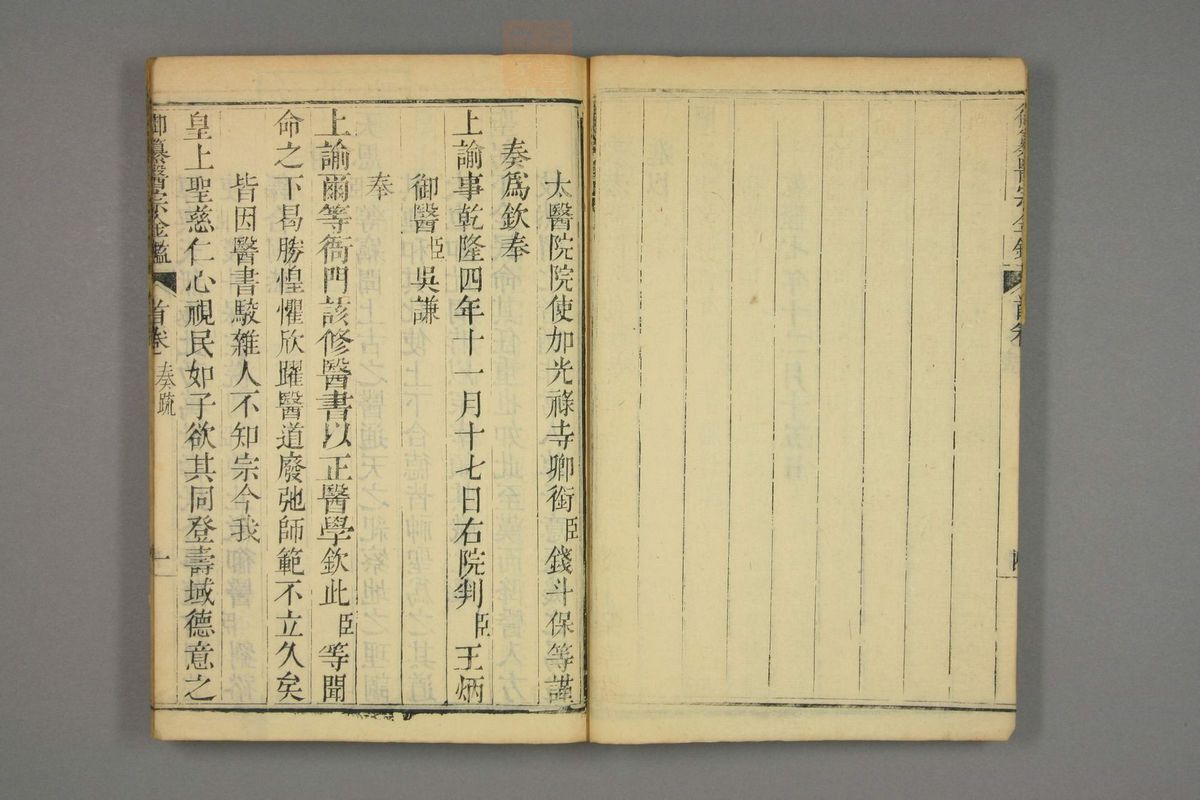 御纂醫宗金鑑
首卷
太醫院院使加光祿寺卿銜臣錢斗保等謹
奏爲欽奉
上諭事乾隆四年十一月十七日右院判臣王炳
御醫臣吳謙
奉
上諭爾等衙門該修醫書以正醫學欽此臣等聞
命之下曷勝惶懼欣躍醫道廢弛師範不立久矣
皆因醫書駁雜人不知宗今我
皇上聖慈仁心視民如子欲其同登壽域德意之
御纂醫宗金鑑
首卷 奏疏
一